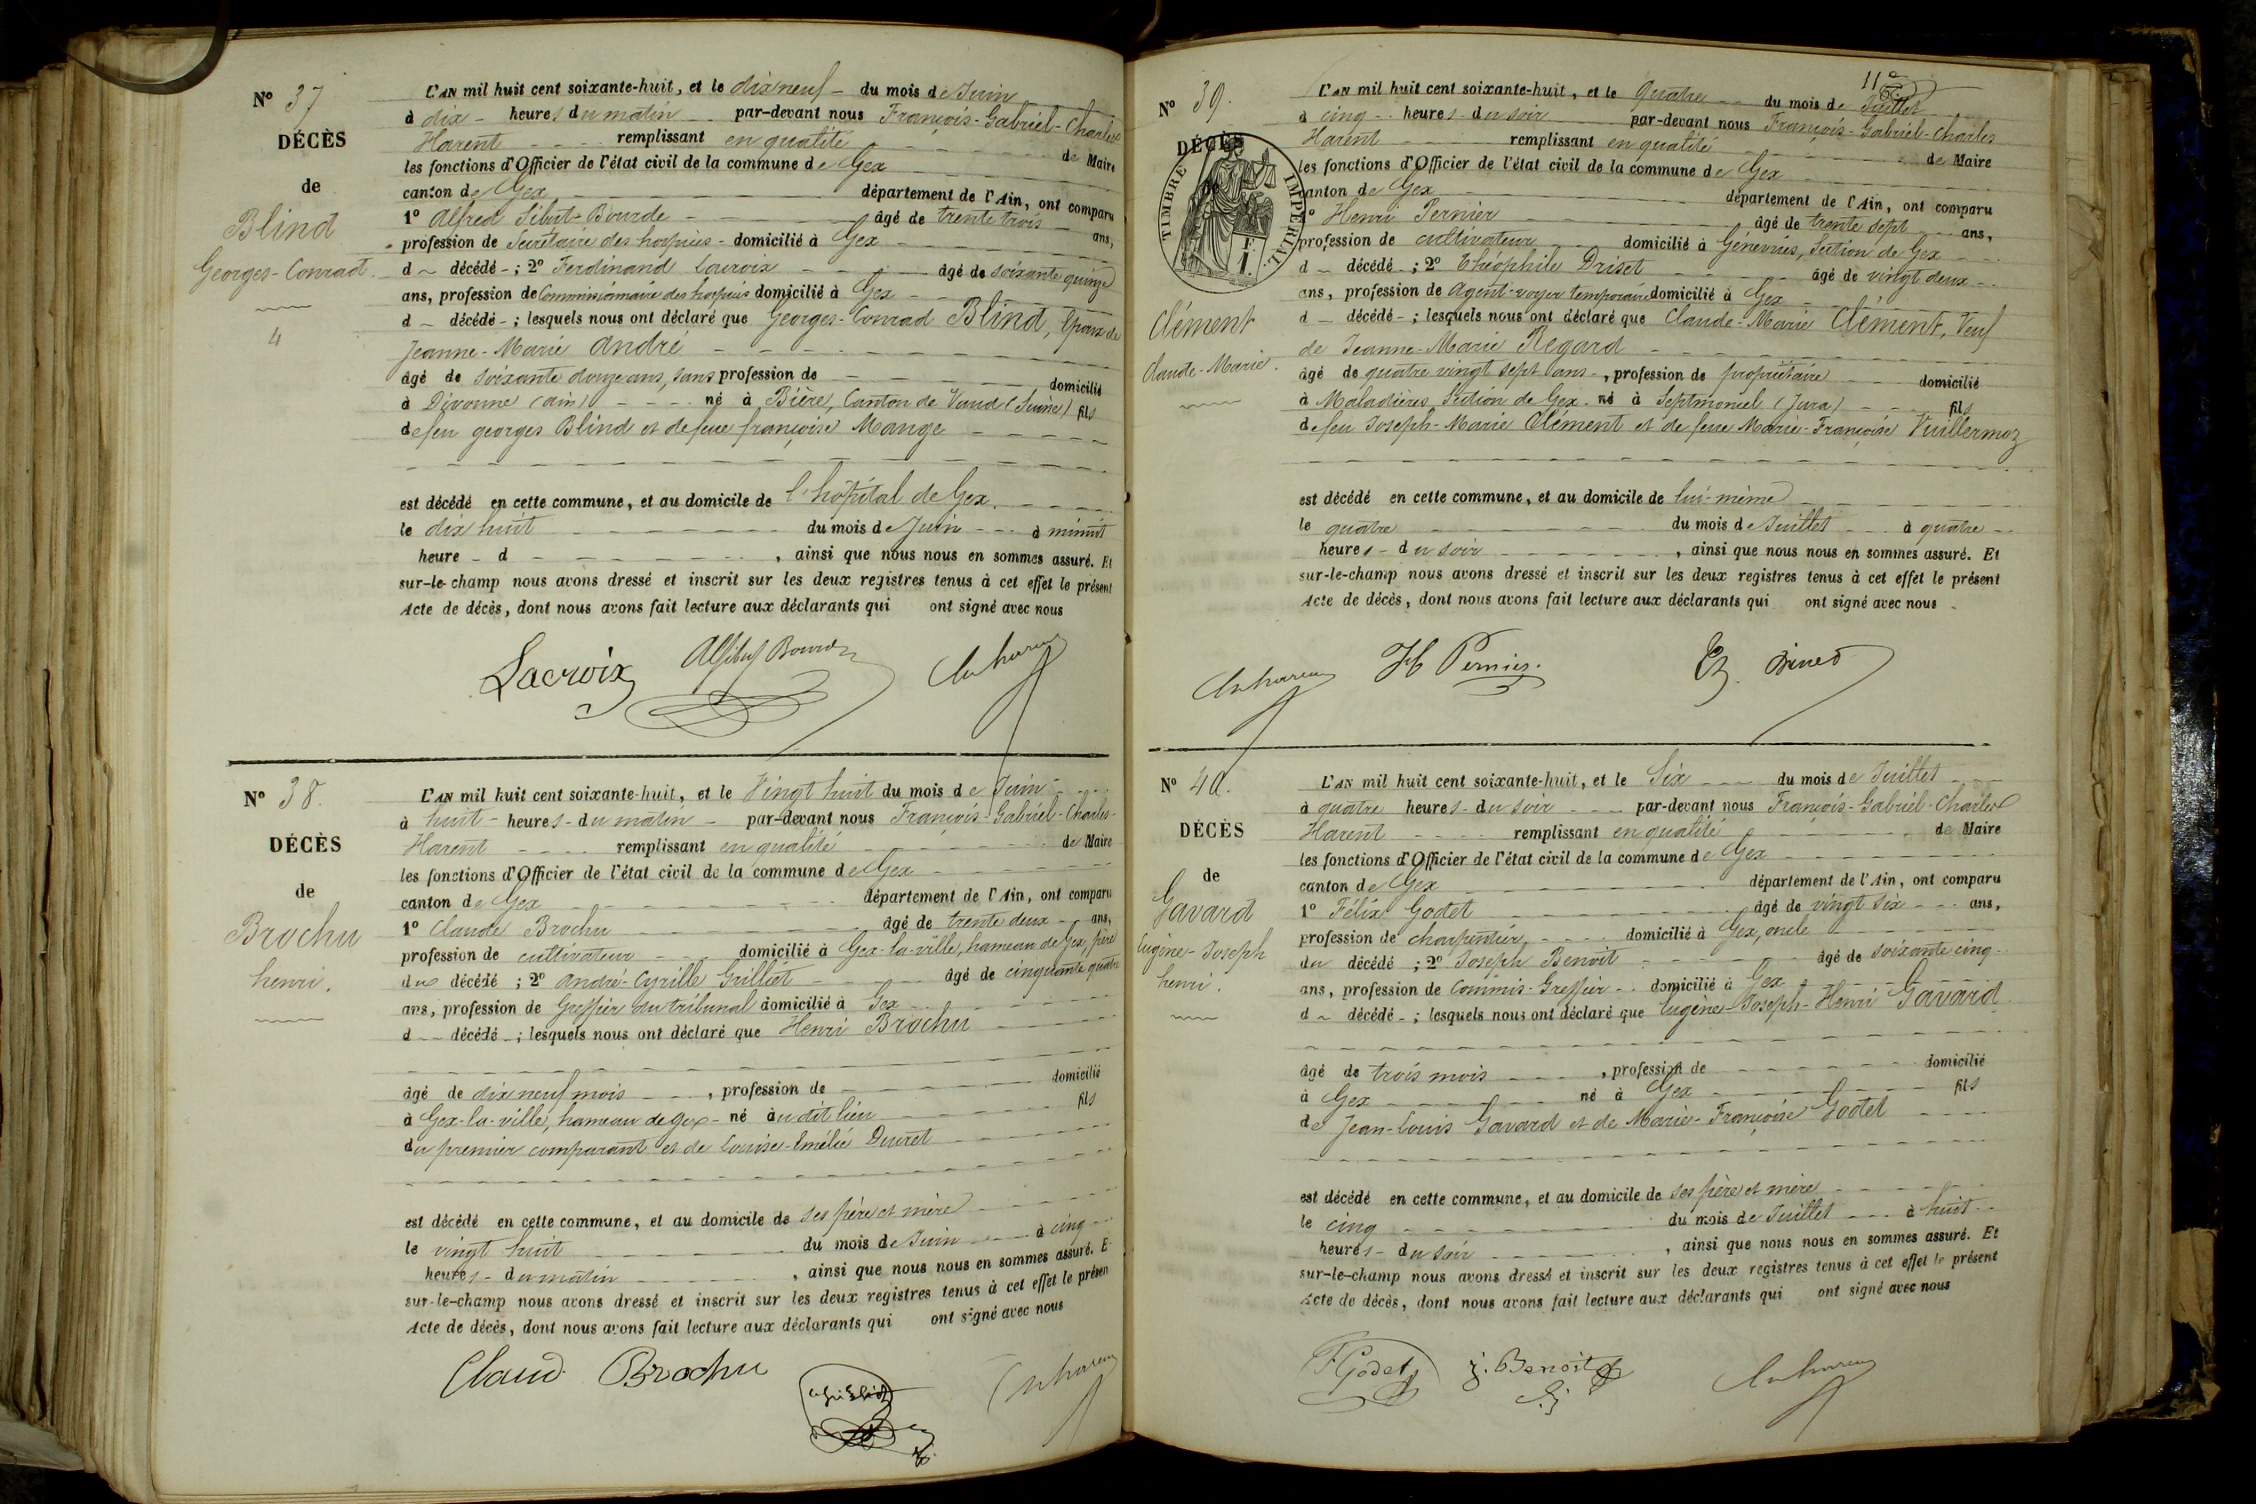 N° 37
DÉCÈS
de
Blind
Georges-Conrad.
4
L'AN mil huit cent soixante-huit, et le dix neuf du mois de Juin
à dix heures du matin par-devant nous François-Gabriel-Charles
Harent remplissant en qualité de Maire
les fonctions d'Officier de l'état civil de la commune de Gex
canton de Gex département de l'Ain, ont comparu
1° Alfred Sibut-Bourde âgé de trente trois ans,
profession de Secrétaire des hospices domicilié à Gex
d décédé ; 2° Ferdinand Lacroix âgé de soixante quinze
ans, profession de Commissionnaire des hospices domicilié à Gex
d décédé ; lesquels nous ont déclaré que Georges-Conrad Blind, Epoux de
Jeanne-Marie André
âgé de soixante douze ans, sans profession de domicilié
à Divonne (ain) né à Bière, Canton de Vaud (Suisse) fils
de feu georges Blind et de feue françoise Mange
est décédé en cette commune, et au domicile de l'hôpital de Gex.
le dix huit du mois de Juin à minuit
heure d , ainsi que nous nous en sommes assuré. Et
sur-le-champ nous avons dressé et inscrit sur les deux registres tenus à cet effet le présent
Acte de décès, dont nous avons fait lecture aux déclarants qui ont signé avec nous
Lacroix
N° 38.
DÉCÈS
de
Brochu
henri.
L'AN mil huit cent soixante-huit, et le Vingt huit du mois de Juin
à huit heures du matin par-devant nous François-Gabriel-Charles
Harent remplissant en qualité de Maire
les fonctions d'Officier de l'état civil de la commune de Gex
canton de Gex département de l'Ain, ont comparu
1° Claude Brochu âgé de trente deux ans,
profession de cultivateur domicilié à Gex-la-ville, hameau de Gex, père
du décédé ; 2° André-Cyrille Grilliet âgé de cinquante quatre
ans, profession de Greffier du tribunal domicilié à Gex
d décédé ; lesquels nous ont déclaré que Henri Brochu
âgé de dix neuf mois , profession de domicilié
à Gex-la-ville, hameau de Gex né au dit lieu fils
du premier comparant et de Louise-Emélie Duret
est décédé en cette commune, et au domicile de ses père et mère
le vingt huit du mois de Juin à cinq
heures du matin , ainsi que nous nous en sommes assuré. E
sur-le-champ nous avons dressé et inscrit sur les deux registres tenus à cet effet le présen
Acte de décès, dont nous avons fait lecture aux déclarants qui ont signé avec nous
Claud Brochu
11e
N° 39.
DÉCÈS
TIMBRE IMPÉRIAL
Clément
Claude-Marie.
L'AN mil huit cent soixante-huit, et le quatre du mois de Juillet
à cinq heures du soir par-devant nous François-Gabriel-Charles
Harent remplissant en qualité de Maire
les fonctions d'Officier de l'état civil de la commune de Gex
canton de Gex département de l'Ain, ont comparu
1° Henri Pernier âgé de trente sept ans,
profession de cultivateur domicilié à Génévries, Section de Gex
d décédé ; 2° Théophile Driset âgé de vingt deux
ans, profession de Agent-voyer temporaire domicilié à Gex
d décédé ; lesquels nous ont déclaré que Claude-Marie Clément, Veuf
de Jeanne-Marie Regard
âgé de quatre vingt sept ans , profession de propriétaire domicilié
à Maladières, Section de Gex né à Septmoncel (Jura) fils
de feu Joseph-Marie Clément et de feue Marie-Françoise Vuillermoz
est décédé en cette commune, et au domicile de lui-même
le quatre du mois de Juillet à quatre
heures du soir , ainsi que nous nous en sommes assuré. Et
sur-le-champ nous avons dressé et inscrit sur les deux registres tenus à cet effet le présent
Acte de décès, dont nous avons fait lecture aux déclarants qui ont signé avec nous
H Pernier.
N° 40.
DÉCÈS
de
Gavard
Eugène-Joseph
henri.
L'AN mil huit cent soixante-huit, et le Six du mois de Juillet
à quatre heures du soir par-devant nous François-Gabriel-Charles
Harent remplissant en qualité de Maire
les fonctions d'Officier de l'état civil de la commune de Gex
canton de Gex département de l'Ain, ont comparu
1° Félix Godet âgé de vingt six ans,
profession de charpentier domicilié à Gex, oncle
du décédé ; 2° Joseph Benoit âgé de soixante cinq
ans, profession de Commis-Greffier domicilié à Gex
d décédé ; lesquels nous ont déclaré que Eugène-Joseph-Henri Gavard
âgé de trois mois , profession de domicilié
à Gex né à Gex fils
de Jean-Louis Gavard et de Marie-Françoise Godet
est décédé en cette commune, et au domicile de ses père et mère
le cinq du mois de Juillet à huit
heures du soir , ainsi que nous nous en sommes assuré. Et
sur-le-champ nous avons dressé et inscrit sur les deux registres tenus à cet effet le présent
Acte de décès, dont nous avons fait lecture aux déclarants qui ont signé avec nous
F Godet J. Benoit